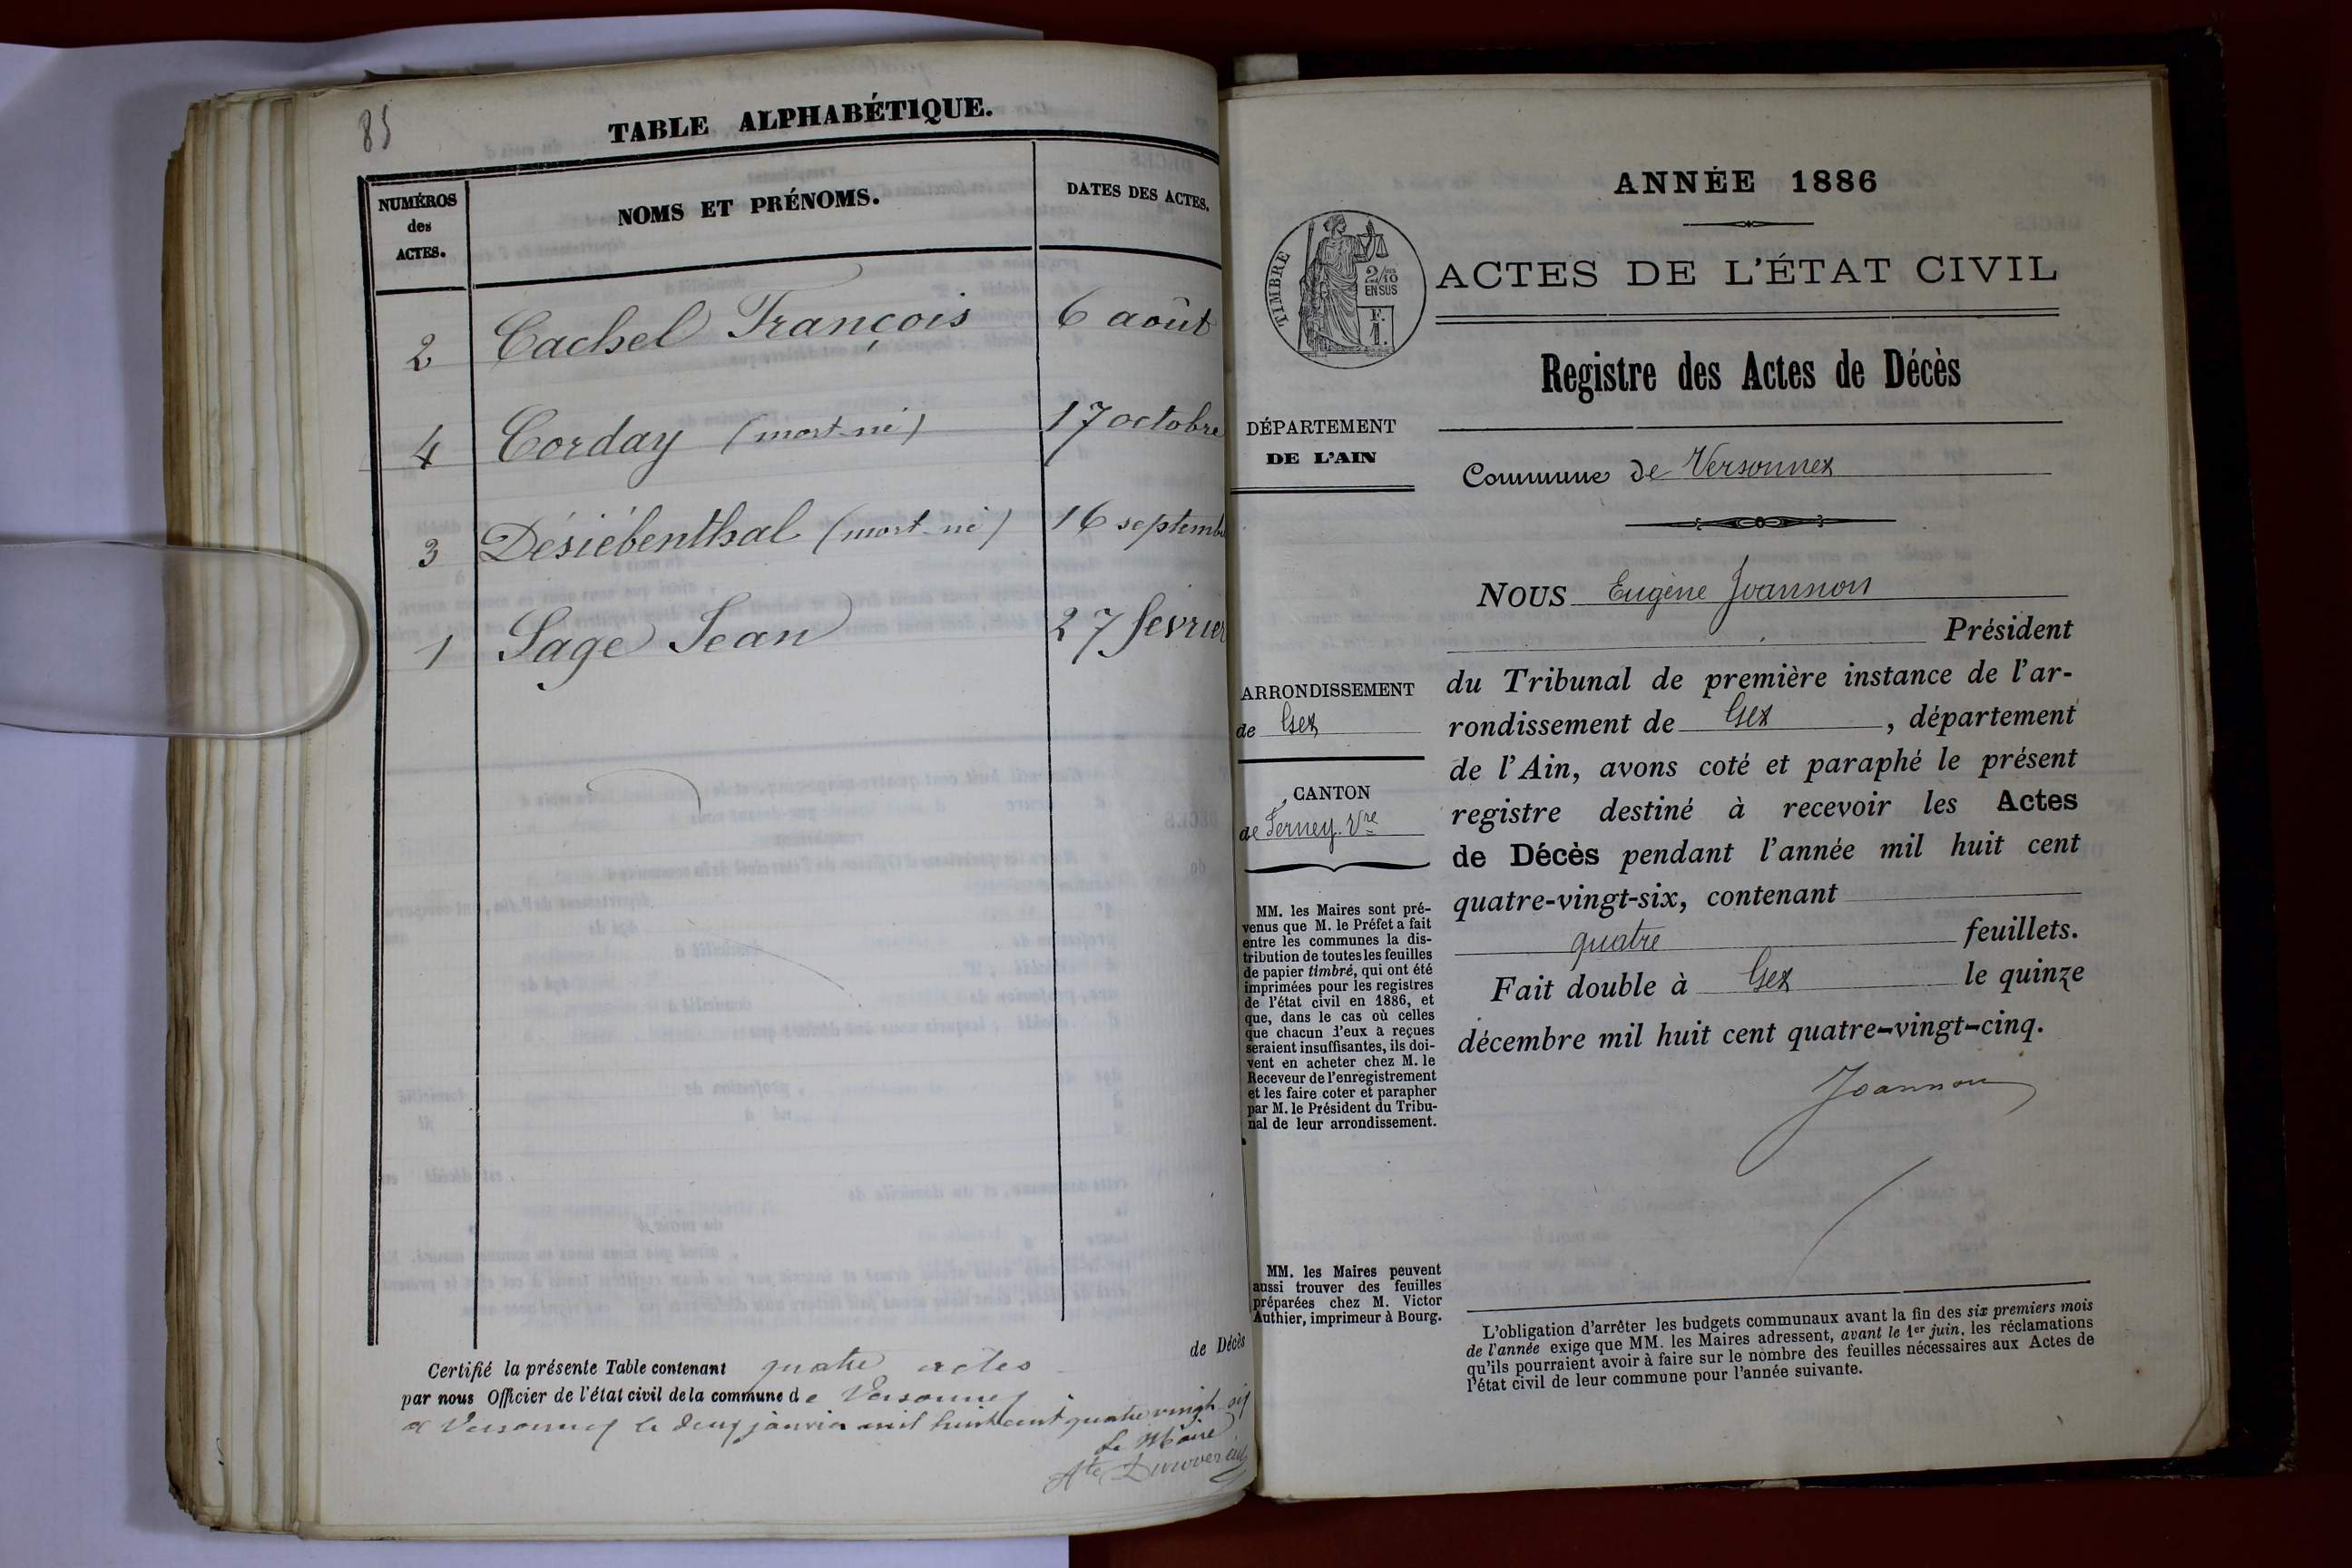 85
TABLE ALPHABÉTIQUE.
NUMÉROS
des
ACTES.
NOMS ET PRÉNOMS.
DATES DES ACTES.
2 Cachel François 6 août
4 Corday (mort-né) 17 octobre
3 Désiébenthal (mort-né) 16 septemb
1 Sage Jean 27 février
Certifié la présente Table contenant quatre actes de Décès
par nous Officier de l'état civil de la commune de Versonnex
a Versonnex le deux janvier mil huit cent quatre vingt six
Le Maire
ANNÉE 1886
TIMBRE
2/10
EN SUS
F.
1.
ACTES DE L'ÉTAT CIVIL
Registre des Actes de Décès
DÉPARTEMENT
DE L'AIN
Commune de Versonnex
NOUS Eugène Joannon
Président
du Tribunal de première instance de l'ar-
rondissement de Gex, département
de l'Ain, avons coté et paraphé le présent
registre destiné à recevoir les Actes
de Décès pendant l'année mil huit cent
quatre-vingt-six, contenant
quatre feuillets.
Fait double à Gex le quinze
décembre mil huit cent quatre-vingt-cinq.
Joannon
ARRONDISSEMENT
de Gex
CANTON
de Ferney-Vre
MM. les Maires sont pré-
venus que M. le Préfet a fait
entre les communes la dis-
tribution de toutes les feuilles
de papier timbré, qui ont été
imprimées pour les registres
de l'état civil en 1886, et
que, dans le cas où celles
que chacun d'eux a reçues
seraient insuffisantes, ils doi-
vent en acheter chez M. le
Receveur de l'enregistrement
et les faire coter et parapher
par M. le Président du Tribu-
nal de leur arrondissement.
MM. les Maires peuvent
aussi trouver des feuilles
préparées chez M. Victor
Authier, imprimeur à Bourg.
L'obligation d'arrêter les budgets communaux avant la fin des six premiers mois
de l'année exige que MM. les Maires adressent, avant le 1er juin, les réclamations
qu'ils pourraient avoir à faire sur le nombre des feuilles nécessaires aux Actes de
l'état civil de leur commune pour l'année suivante.